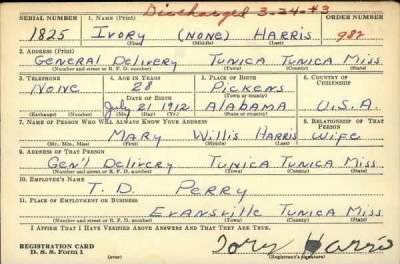 Discharged 3-24-43
SERIAL NUMBER 1. NAME (Print) ORDER NUMBER
1825 IVORY (NONE) HARRIS 982
(First) (Middle) (Last)
2. ADDRESS (Print)
GENERAL DELIVERY TUNICA TUNICA MISS.
(Number and street or R. F. D. number) (Town) (County) (State)
3. TELEPHONE 4. AGE IN YEARS 5. PLACE OF BIRTH 6. COUNTRY OF CITIZENSHIP
NONE 28 PICKENS
DATE OF BIRTH (Town or county)
July 21 1912 ALABAMA U.S.A.
(Exchange) (Number) (Mo.) (Day) (Yr.) (State or country)
7. NAME OF PERSON WHO WILL ALWAYS KNOW YOUR ADDRESS 8. RELATIONSHIP OF THAT PERSON
MARY WILLIS HARRIS WIFE
(Mr., Mrs., Miss) (First) (Middle) (Last)
9. ADDRESS OF THAT PERSON
GEN'L DELIVERY TUNICA TUNICA MISS.
(Number and street or R. F. D. number) (Town) (County) (State)
10. EMPLOYER'S NAME
T. D. PERRY
11. PLACE OF EMPLOYMENT OR BUSINESS
EVANSVILLE TUNICA MISS
(Number and street or R. F. D. number) (Town) (County) (State)
I AFFIRM THAT I HAVE VERIFIED ABOVE ANSWERS AND THAT THEY ARE TRUE.
REGISTRATION CARD
D. S. S. Form 1 (over) (Registrant's signature)